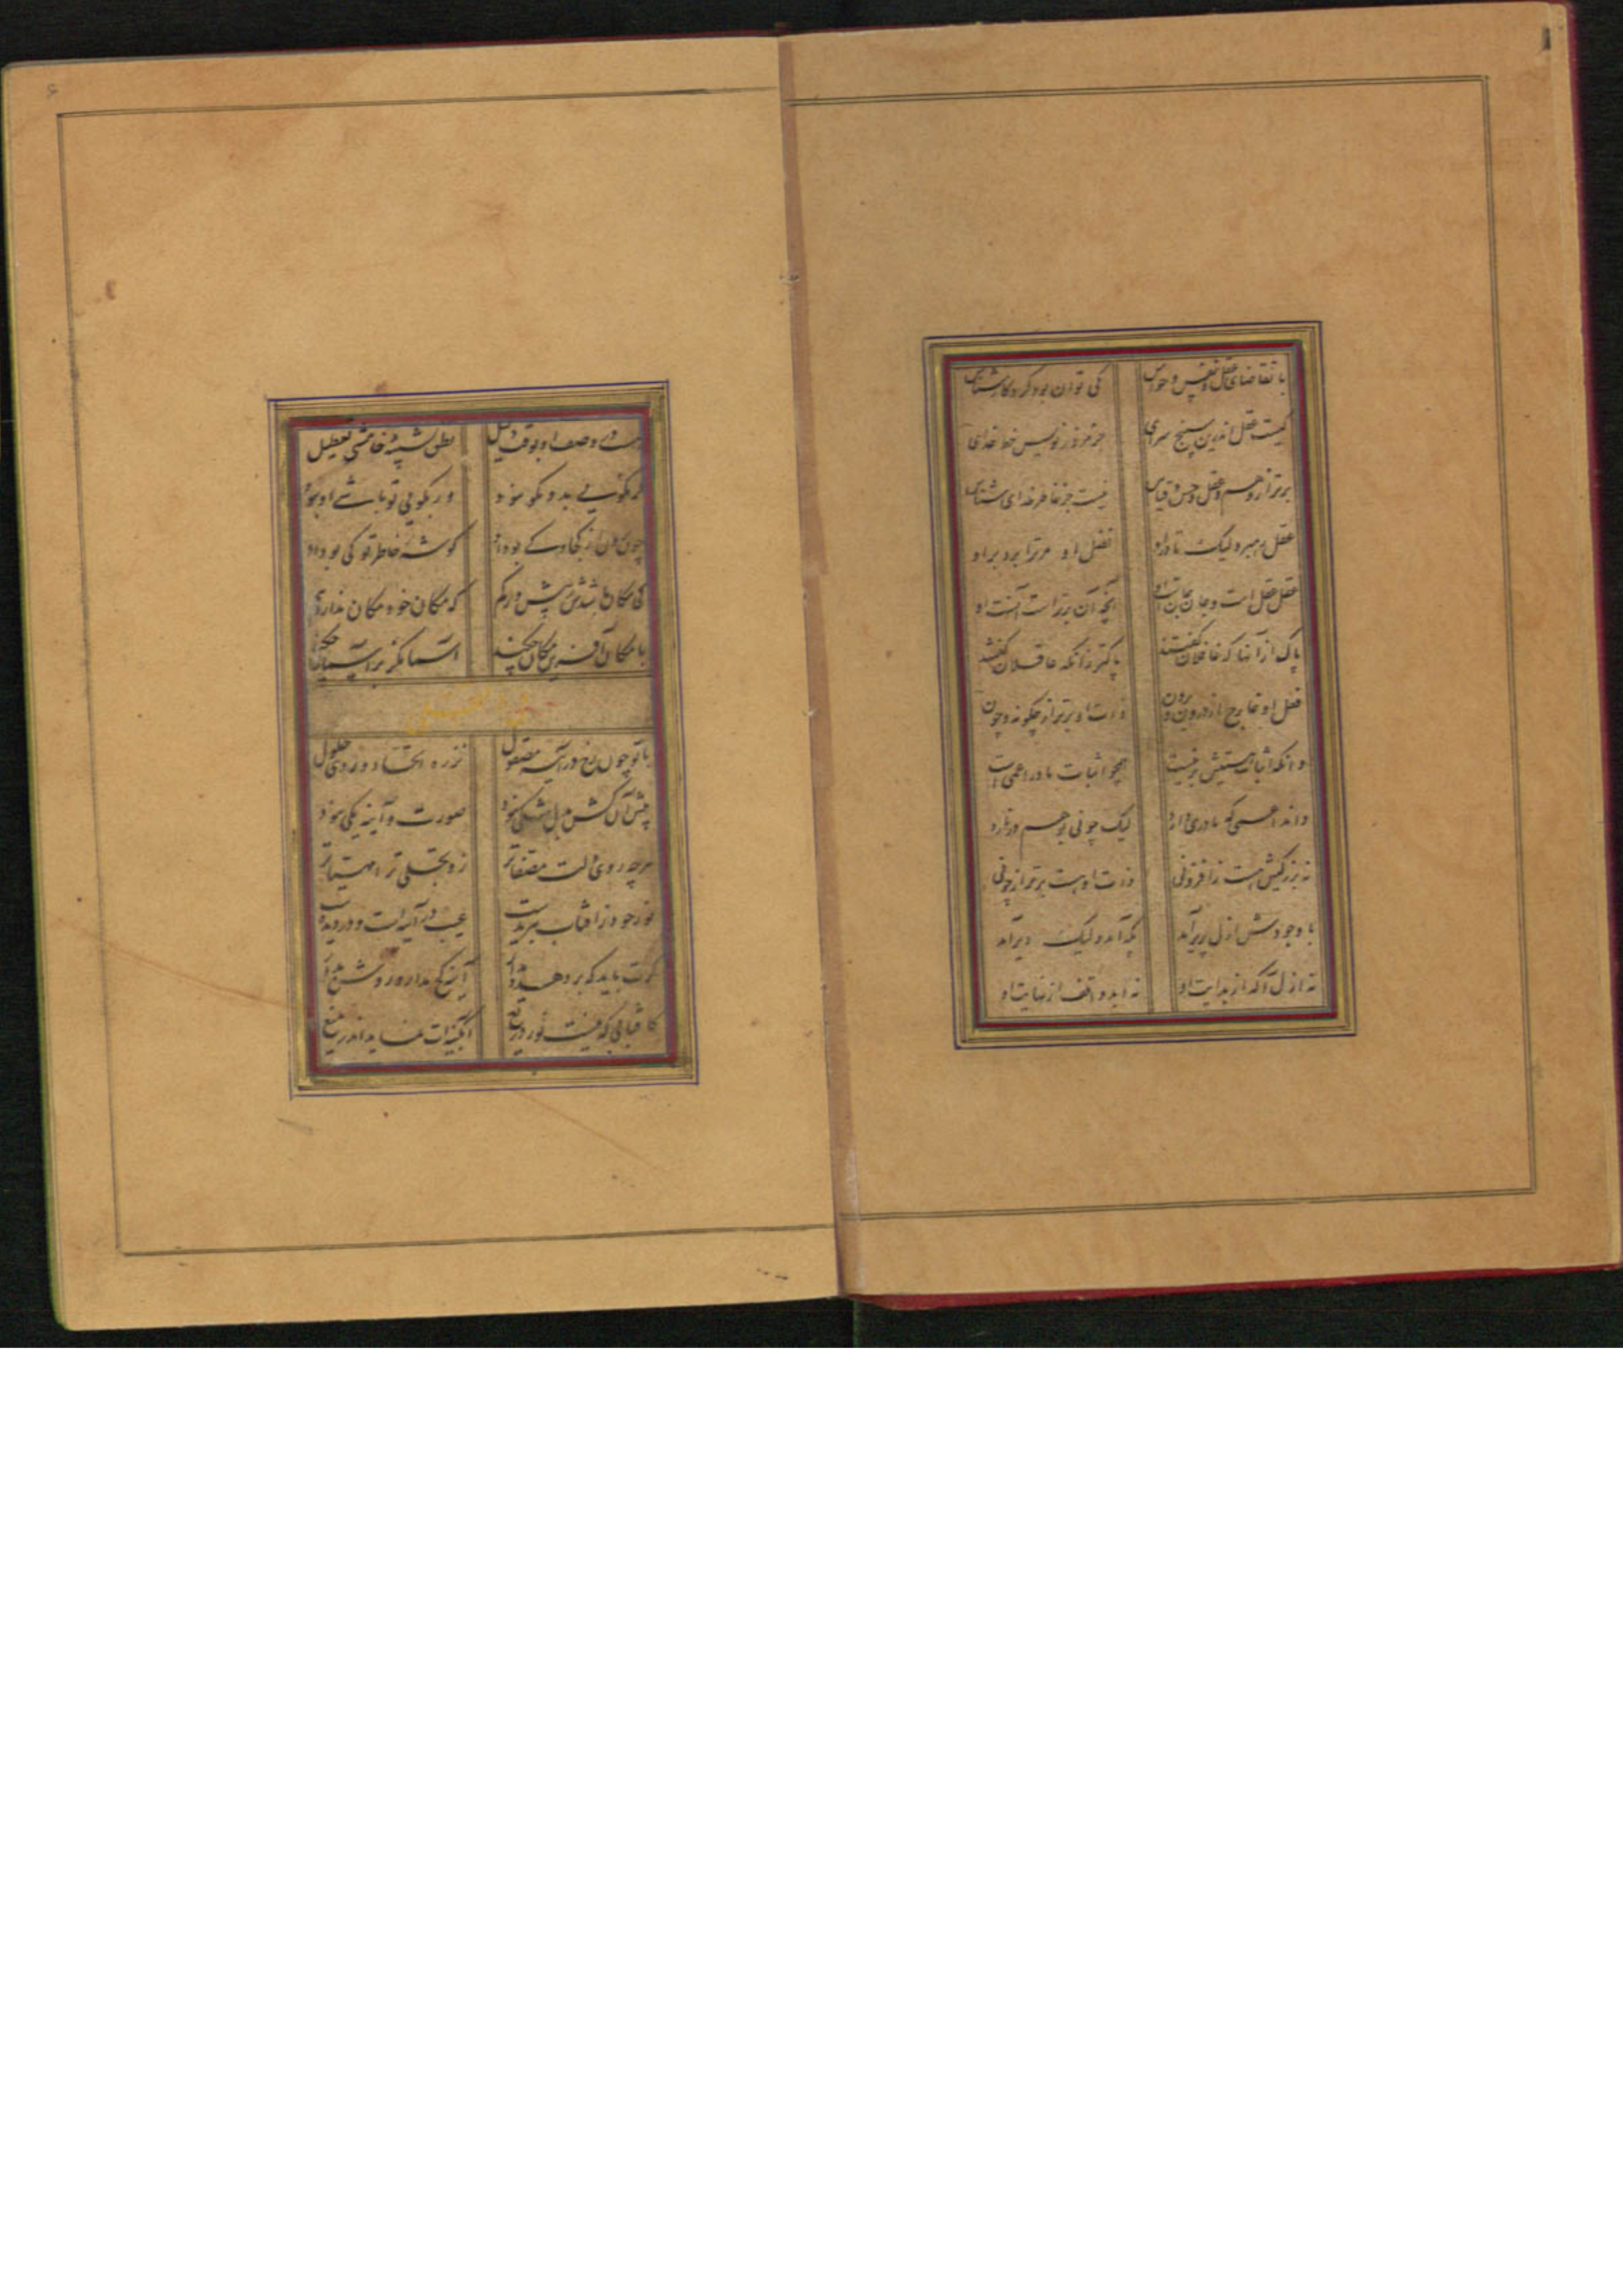 با تقاضای عقل و نفس و حواس کی توان بود کردکار شناس
کیست عقل اندرین سپنج سرای جز مزور نویس خط خدای
برتر از وهم و عقل و حس و قیاس نیست جز خاطر خدای شناس
عقل رهبر ولیک تا در او فضل او مر ترا برد بر او
عقل عقل است و جان جانست او آنچه آن برتر است آنست او
پاک از آنها که غافلان گفتند پاکتر زانکه عاقلان گفتند
فعل او خارج از درون و برون ذات او برتر از چکونه و چون
وانکه اثبات هستیش بر نیست همچو اثبات مادر اعمی است
داند اعمی که مادری دارد لیک چونی بوهم در نارد
نه بزرکیش هست از افزونی ذات او هست برتر از چونی
با وجودش ازل پریر آمد پکه آمد ولیک دیر آمد
نه ازل آکه از بدایت او نه ابد واقف از نهایت او
هست در وصف او بوقت دلیل نطق تشبیه خامشی تعطیل
گر نکویی بدو نکو نبود ور بکویی تو باشی او نبود
کوشهٔ خاطر تو کی بود او
کی مکان باشدش ز پیش و ز کم که مکان خود مکان ندارد هم
با مکان آفرین مکان چکند آسمانکر بر آسمان چکند
با تو چون رخ در آینه مصقول نز ره اتحاد و روی حلول
پیش آن کش بدل شکی نبود صورت و آینه یکی نبود
هرچه روی دلت مصفاتر زو تجلی ترا مهیاتر
نور خود ز آفتاب نبریدست عیب در آینه است و در دیدست
گرت باید که بر دهد دیدار آینه کج مدار و روشن دار
کافتابی که نیست نور دریغ آبگینه‌ات نماید اندر میغ